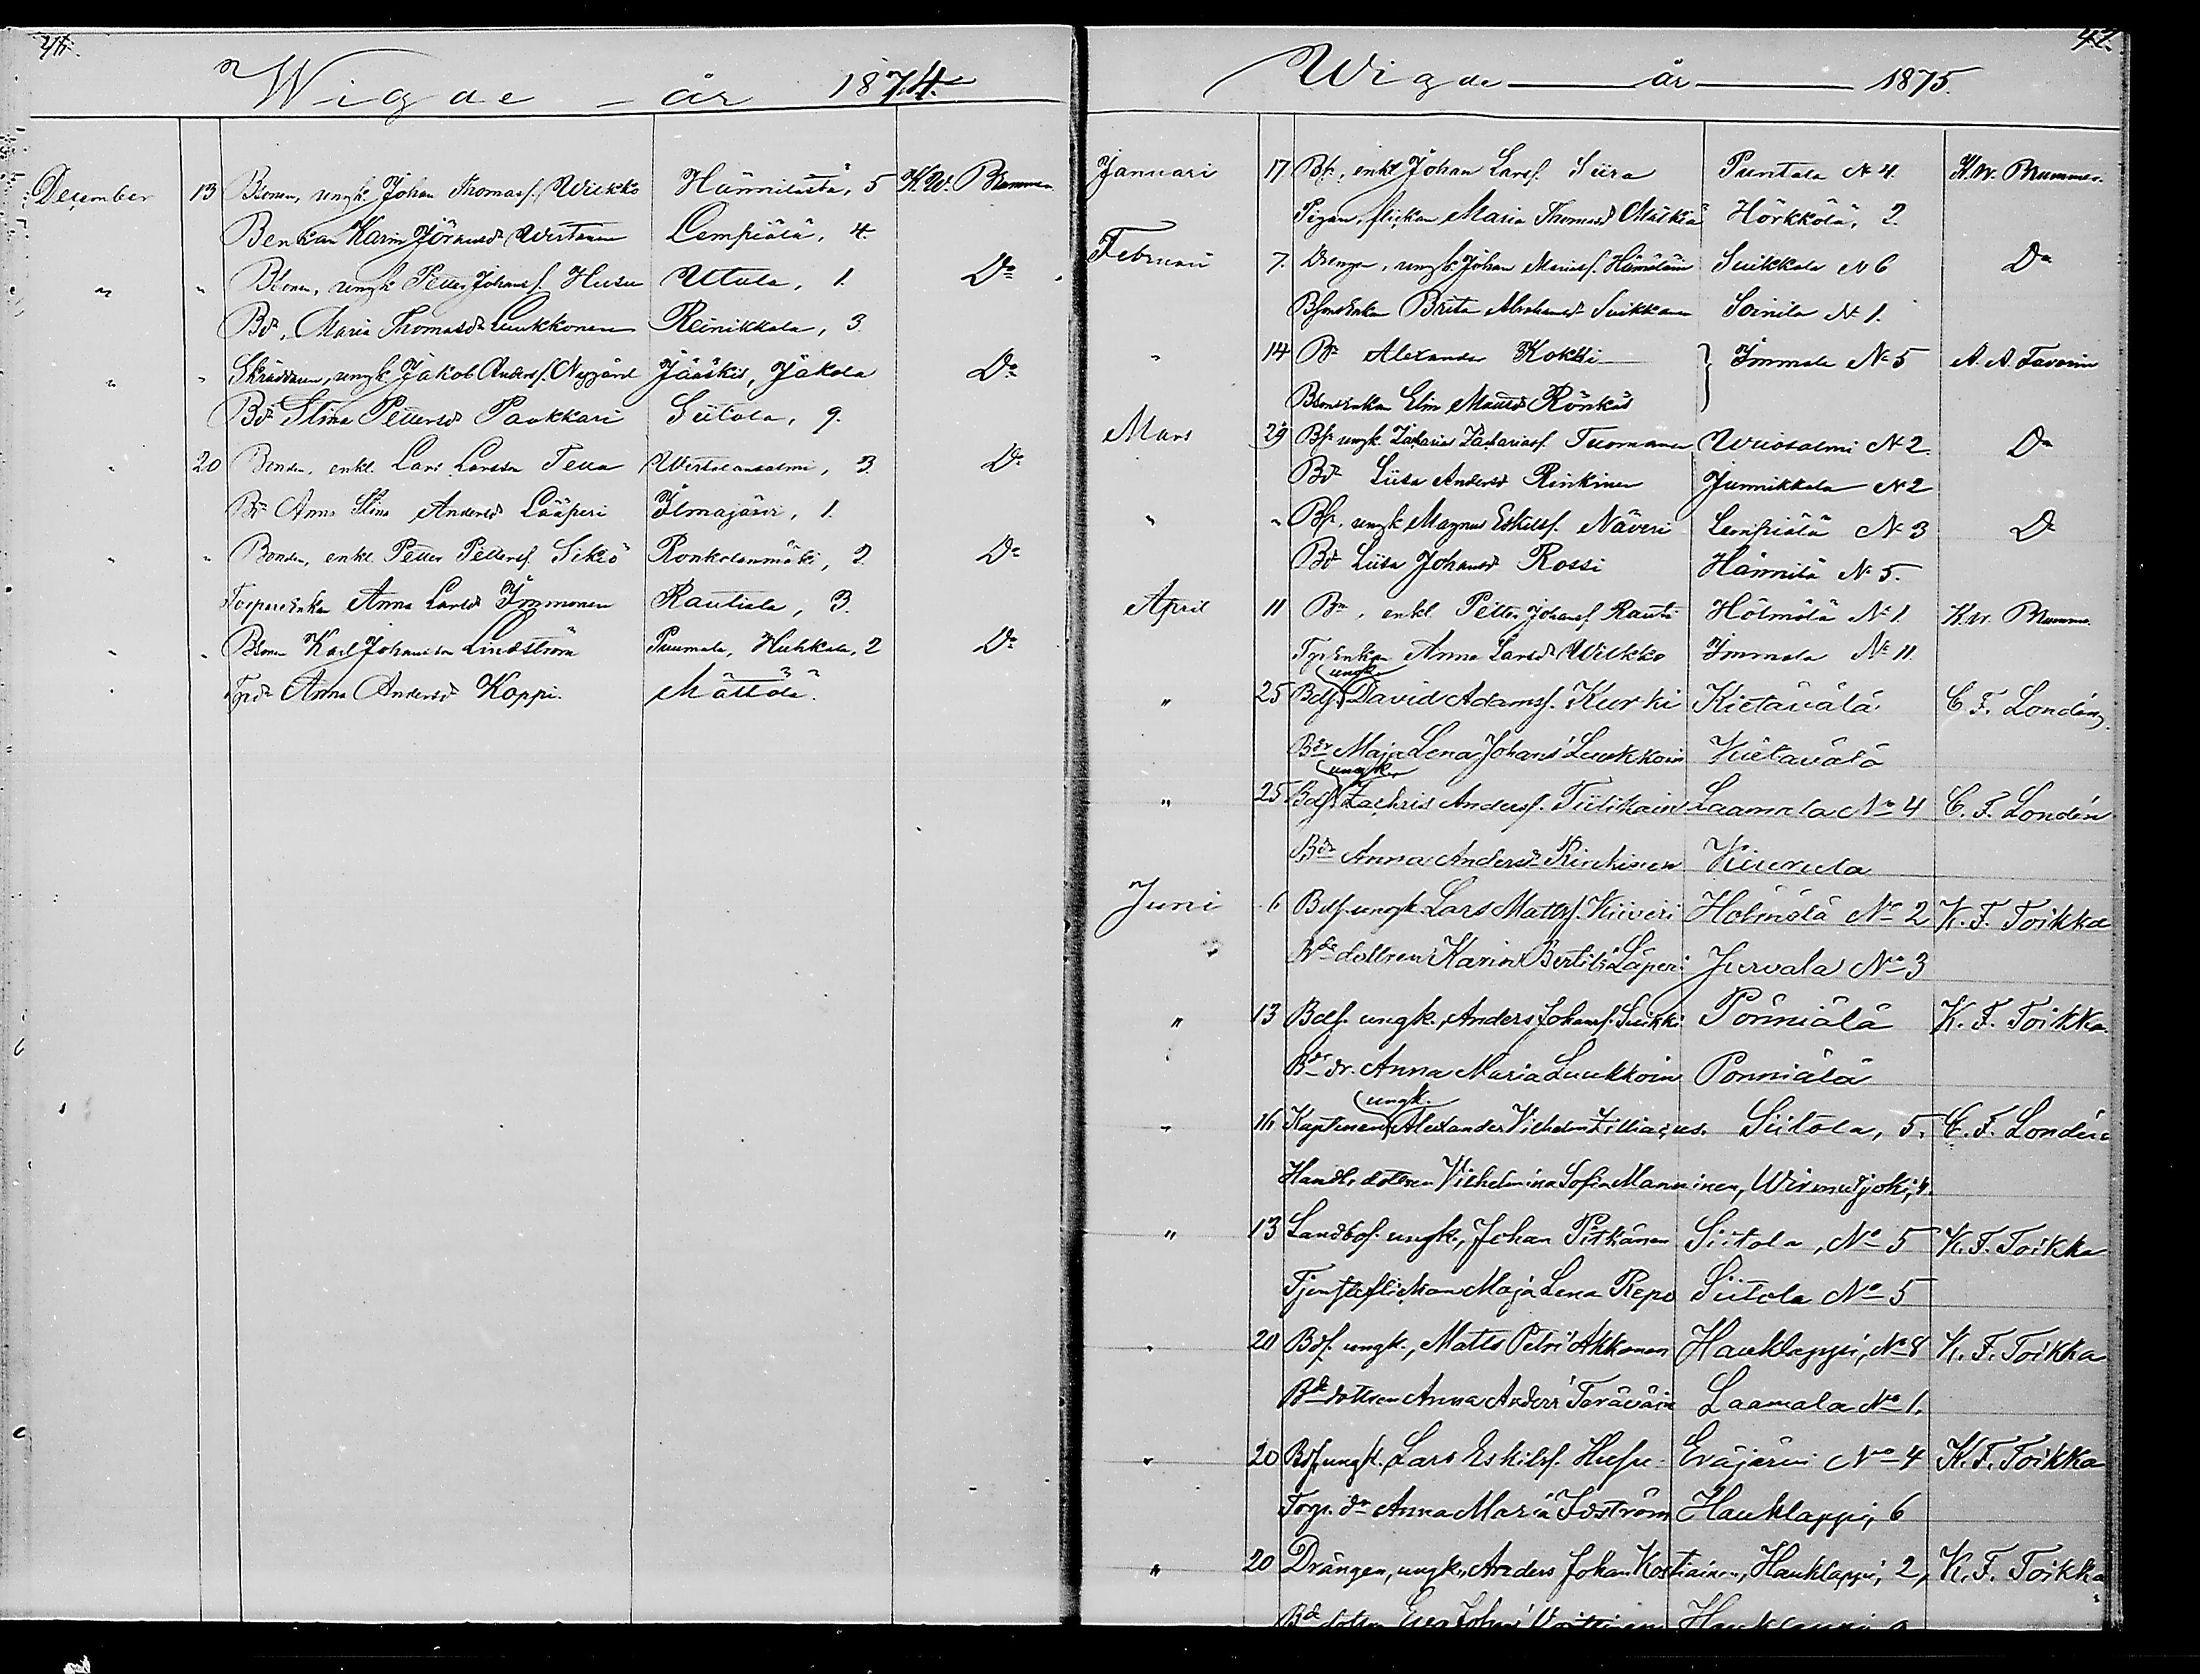 Wigde - år 1874
December 13 Bsonen, ungk. Johan Thomasf. Wilkko Hännilästä, 5 K.W. Brummer
Karin Jöransdr Wirtanen Lempiälä, 4.
" " Bsonen, ungk. Petter Johansf. Husu Utula, 1. Do
Bdr, Maria Thomasdr Luukkonen Reinikkala, 3
" " Skräddaren, ungk. Jakob Andersf. Nygård Jääskis, Jakola Do
Bdr Stina Pettersdr Paukkari Siitola, 9.
" 20 Bonden, enkl. Lars Larsson Tella 3 Do
Bdr Anna Stina Andersdr Lääperi Ilmajärvi, 1.
" " Bonden, enkl. Petter Pettersf. Sikiö Ronkolanmäki, 2 Do
Torpare Enkan Anna Larsdr Immonen Rautiala, 3.
" " Bsonen Karl Johansson Lindström Puumala, Huhkala, 2 Do
Tpdr Anna Andersdr Koppi. Mättölä.
47.
Wigde år 1875.
Januari 17 Bf, enkl Johan Larsf. Siira Puntala No 4. K.W. Brummer.
Pigan, flickan Maria Thomasdr Mälkiä Hörkkölä, 2.
Februari 7. Drengen, ungk. Johan Hämäläin Suikkala No 6 Do
Bsons Enkan Brita Abrahamsdr Suikkanen Soinila No 1.
" 14 Bn Alexander Kokki Immala No 5 A. A. Favorin
Bsons Enkan Elin Mattsdr Rönkäs
Mars 29 Bf. ungk. Zacharias Zachariasf. Tuomanen Wuosalmi No 2. Do
Bdr Liisa Andersdr Rinkinen Junnikkala No 2
" " Bf, ungk Magnus Eskilsf. Näveri Lempiälä No 3 Do
Bdr Liisa Johansdr Rossi Hännilä No 5.
April 11 Bn, enkl. Petter Johansf. Rauti Hölmölä No 1. K.W. Brummer
Tpr Enkan Anna Larsdr Wilkko Immala No 11.
ungk.
" 25 Bdf. David Adamsf. Kurki Kietävälä C. F. Londén
Bdr Maja Lena Johans' Luukkoin Kietävälä
ungk.
" 25 Bdf. Zachris Andersf. Tiilikain Laamala No 4 C. F. Londén
Bdr Anna Andersdr Rinkinen Kiurula
Juni 6 Bdf. ungk. Lars Mattsf. Kiiveri Hölmölä No 2 K. F. Toikka
Bde dottren Karin Bertils' Läperi Jurvala No 3
" 13 Bdf. ungk., Anders Johansf. Suikki Ponniälä K. F. Toikka.
Bde dr. Anna Maria Luukkoin Ponniälä
ungk.
" 16 Kaptenen Alexander Vilhelm Zilliacus. Siitola, 5. C. F. Londén
Handl. dottren Vilhelmina Sofia Manninen, Wirmutjoki, 4.
" 13 Landbof. ungk., Johan Pitkänen Siitola, No 5 K. F. Toikka
Tjensteflickan Maja Lena Repo Siitola No 5
" 20 Bdf. ungk., Matts Petri' Akkanen Hauklappi, No 8 K. F. Toikka
Bde dottren Anna Anders' Taraväin Laamala No 1.
" 20 Bdf. ungk. Lars Eskilsf. Husu Eräjärvi No 4 K. F. Toikka
Torp. dr Anna Maria Idström Hauklappi, 6
" 20 Drängen, ungk., Anders Johan Kostiainen, Hauklappi, 2, K. F. Toikka